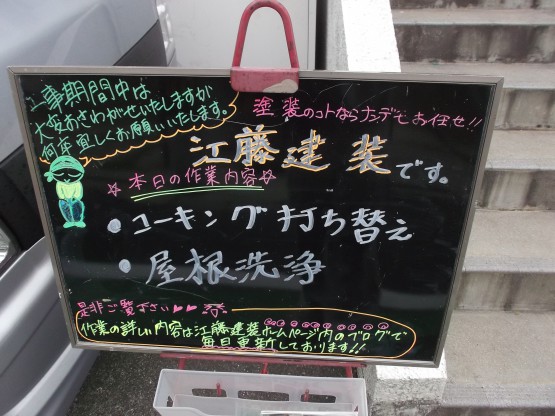 工事期間中は
大変おさわがせいたしますが
何卒宜しくお願いいたします。
塗装のコトならナンデモお任せ!!
江藤建装です。
☆本日の作業内容☆
・コーキング打ち替え
・屋根洗浄
是非ご覧下さい♥♥
作業の詳しい内容は江藤建装ホームページ内のブログで
毎日更新しております!!